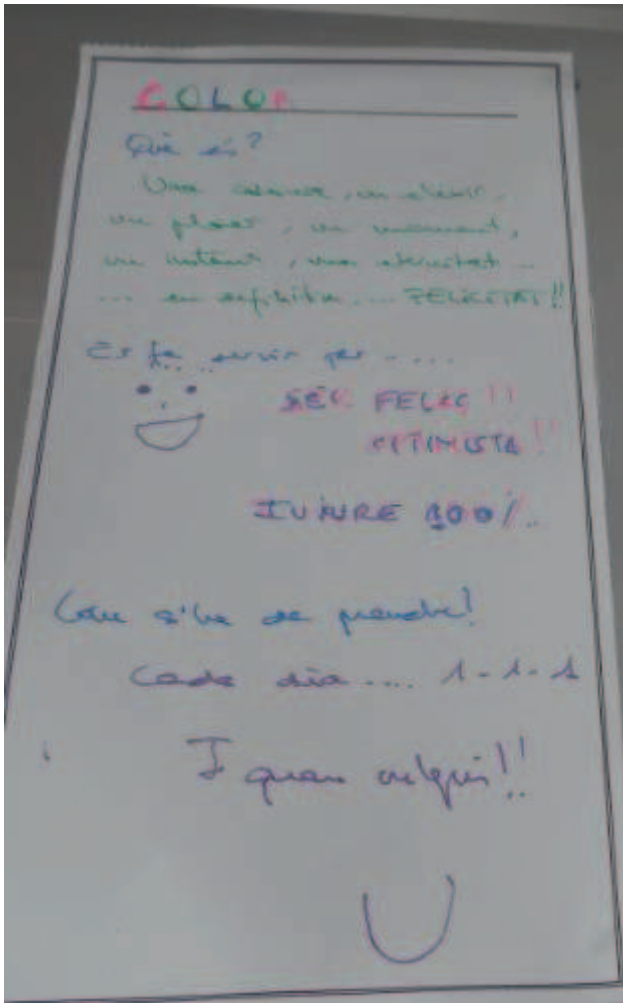 COLOR
Què és?
Una essència, un elixir,
un plaer, un moment,
un instant, una eternitat...
... en definitiva.... FELICITAT!!
Es fa servir per .....
SER FELIÇ!!
OPTIMISTA!!
I VIURE 100%..
Com s'ha de prendre?
Cada dia.... 1-1-1
I quan vulguis!!